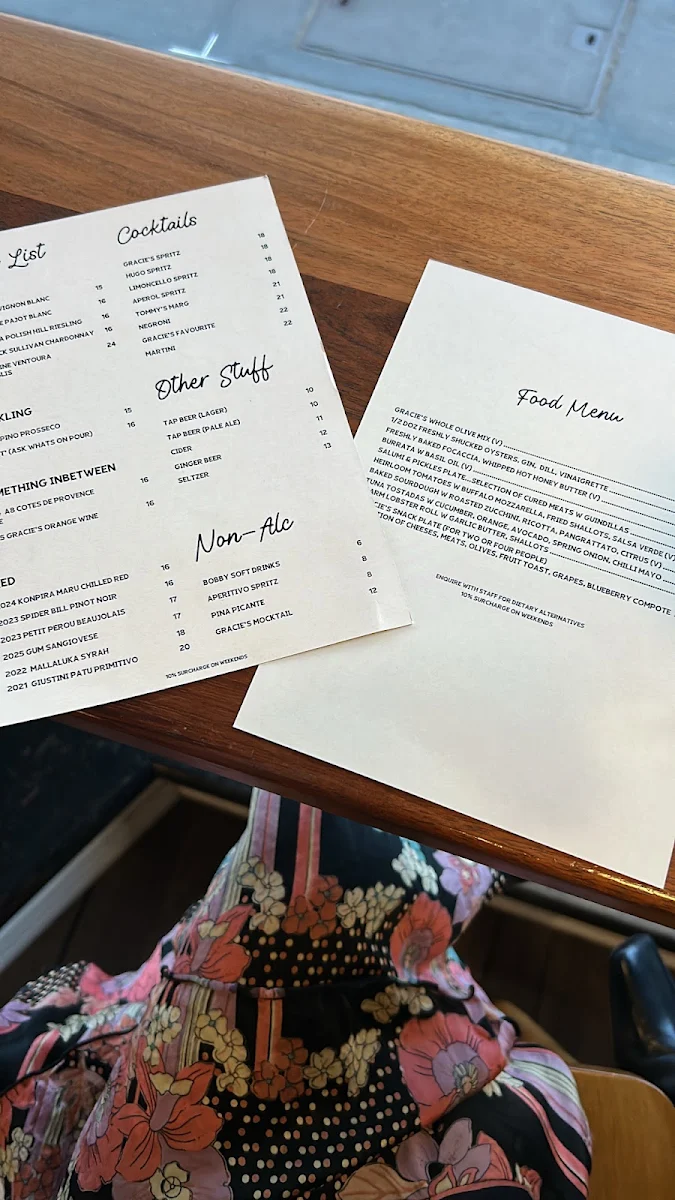 List
BLANC 15
PAJOT BLANC 16
POLISH HILL RIESLING 16
SULLIVAN CHARDONNAY 16
VENTOURA 24
PROSSECO 15
(ASK WHATS ON POUR) 16
INBETWEEN
AB COTES DE PROVENCE 16
GRACIE'S ORANGE WINE 16
2024 KONPIRA MARU CHILLED RED 16
2023 SPIDER BILL PINOT NOIR 16
2023 PETIT PEROU BEAUJOLAIS 17
2025 GUM SANGIOVESE 17
2022 MALLALUKA SYRAH 18
2021 GIUSTINI PATU PRIMITIVO 20
Cocktails
GRACIE'S SPRITZ 18
HUGO SPRITZ 18
LIMONCELLO SPRITZ 18
APEROL SPRITZ 18
TOMMY'S MARG 21
NEGRONI 21
GRACIE'S FAVOURITE 22
MARTINI 22
Other Stuff
TAP BEER (LAGER) 10
TAP BEER (PALE ALE) 10
CIDER 11
GINGER BEER 12
SELTZER 13
Non-Alc
BOBBY SOFT DRINKS 6
APERITIVO SPRITZ 8
PINA PICANTE 8
GRACIE'S MOCKTAIL 12
10% SURCHARGE ON WEEKENDS
Food Menu
GRACIE'S WHOLE OLIVE MIX (V)
1/2 DOZ FRESHLY SHUCKED OYSTERS, GIN, DILL, VINAIGRETTE
FRESHLY BAKED FOCACCIA, WHIPPED HOT HONEY BUTTER (V)
BURRATA W BASIL OIL (V)
SALUMI & PICKLES PLATE...SELECTION OF CURED MEATS W GUINDILLAS
HEIRLOOM TOMATOES W BUFFALO MOZZARELLA, FRIED SHALLOTS, SALSA VERDE (V)
BAKED SOURDOUGH W ROASTED ZUCCHINI, RICOTTA, PANGRATTATO, CITRUS (V)
TUNA TOSTADAS W CUCUMBER, ORANGE, AVOCADO, SPRING ONION, CHILLI MAYO
LOBSTER ROLL W GARLIC BUTTER, SHALLOTS
SNACK PLATE (FOR TWO OR FOUR PEOPLE)
OF CHEESES, MEATS, OLIVES, FRUIT TOAST, GRAPES, BLUEBERRY COMPOTE
ENQUIRE WITH STAFF FOR DIETARY ALTERNATIVES
10% SURCHARGE ON WEEKENDS